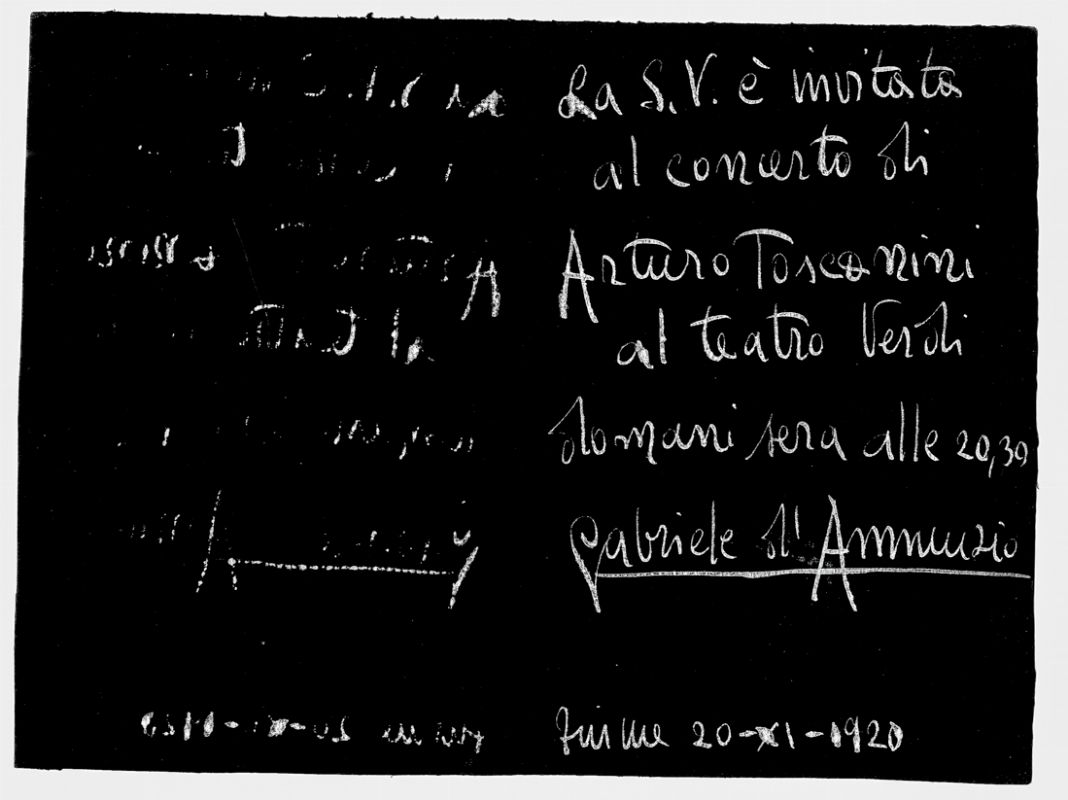 La S.V. è invitata
al concerto di
Arturo Toscanini
al teatro Verdi
domani sera alle 20,30
Gabriele d'Annunzio
Fiume 20-XI-1920